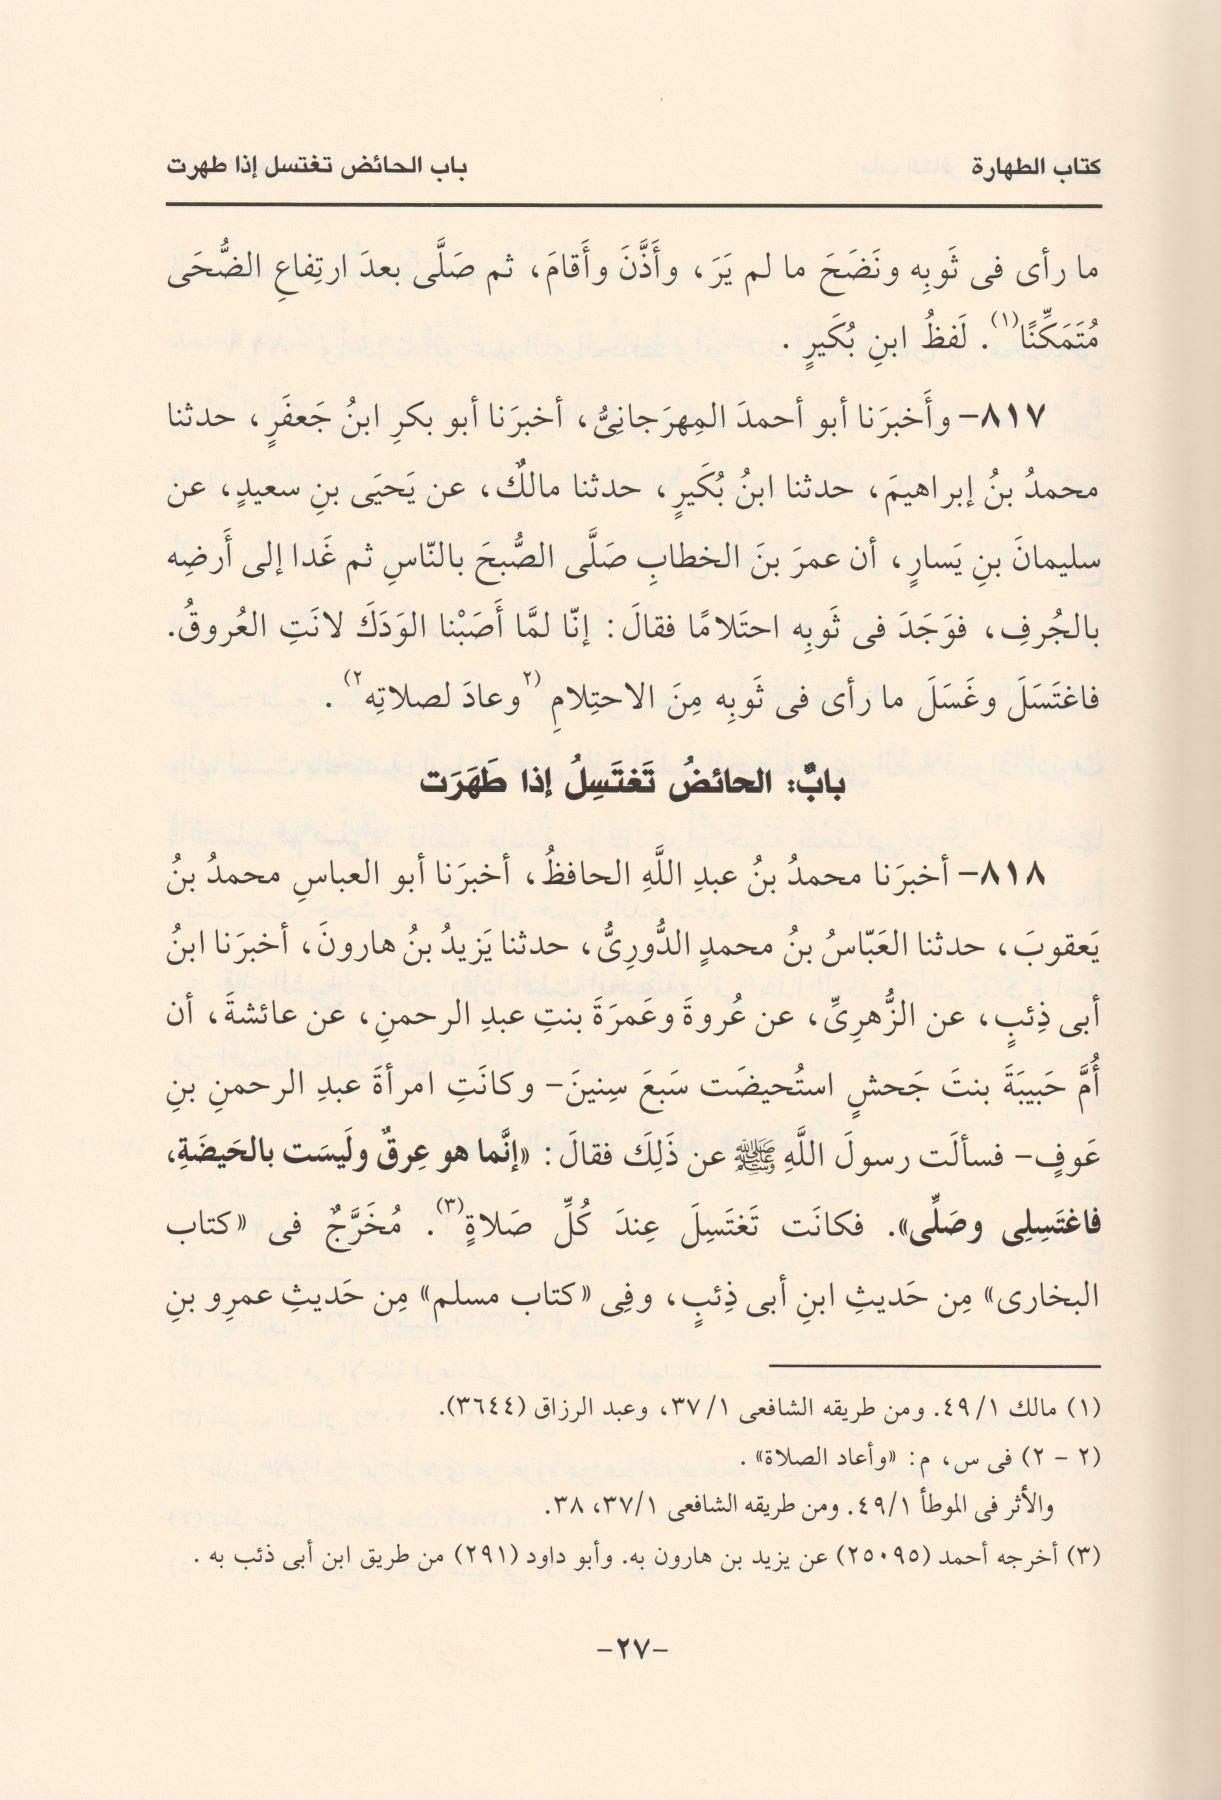 كتاب الطهارة باب الحائض تغتسل إذا طهرت
ما رأى فى ثَوبِه ونَضَحَ ما لم يَرَ، وأَذَّنَ وأَقامَ، ثم صَلَّى بعدَ ارتِفاعِ الضُّحَى
مُتَمَكِّنًا(١). لَفظُ ابنِ بُكَيرٍ.
٨١٧- وأَخبرَنا أبو أحمدَ المِهرَجانِىُّ، أخبرَنا أبو بكرِ ابنُ جَعفَرٍ، حدثنا
محمدُ بنُ إبراهيمَ، حدثنا ابنُ بُكَيرٍ، حدثنا مالكٌ، عن يَحيَى بنِ سعيدٍ، عن
سليمانَ بنِ يَسارٍ، أن عمرَ بنَ الخطابِ صَلَّى الصُّبحَ بالنّاسِ ثم غَدا إلى أَرضِه
بالجُرفِ، فوَجَدَ فى ثَوبِه احتَلامًا فقالَ: إنّا لمَّا أَصَبْنا الوَدَكَ لانَتِ العُروقُ.
فاغتَسَلَ وغَسَلَ ما رأى فى ثَوبِه مِنَ الاحتِلامِ (٢وعادَ لصلاتِه٢).
بابٌ: الحائضُ تَغتَسِلُ إذا طَهَرَت
٨١٨- أخبرَنا محمدُ بنُ عبدِ اللَّهِ الحافظُ، أخبرَنا أبو العباسِ محمدُ بنُ
يَعقوبَ، حدثنا العَبّاسُ بنُ محمدٍ الدُّورِىُّ، حدثنا يَزيدُ بنُ هارونَ، أخبرَنا ابنُ
أبى ذِئبٍ، عن الزُّهرِىِّ، عن عُروةَ وعَمرَةَ بنتِ عبدِ الرحمنِ، عن عائشةَ، أن
أُمَّ حَبيبَةَ بنتَ جَحشٍ استُحيضَت سَبعَ سِنينَ- وكانَتِ امرأةَ عبدِ الرحمنِ بنِ
عَوفٍ- فسألَت رسولَ اللَّهِ ﷺ عن ذَلِكَ فقالَ: «إنَّما هو عِرقٌ ولَيسَت بالحَيضَةِ،
فاغتَسِلِى وصَلِّى». فكانَت تَغتَسِلَ عِندَ كُلِّ صَلاةٍ(٣). مُخَرَّجٌ فى «كتاب
البخارى» مِن حَديثِ ابنِ أبى ذِئبٍ، وفِى «كتاب مسلم» مِن حَديثِ عمرِو بنِ
(١) مالك ٤٩/١. ومن طريقه الشافعى ٣٧/١، وعبد الرزاق (٣٦٤٤).
(٢ - ٢) فى س، م: «وأعاد الصلاة».
والأثر فى الموطأ ٤٩/١. ومن طريقه الشافعى ٣٧/١، ٣٨.
(٣) أخرجه أحمد (٢٥٠٩٥) عن يزيد بن هارون به. وأبو داود (٢٩١) من طريق ابن أبى ذئب به.
-٢٧-